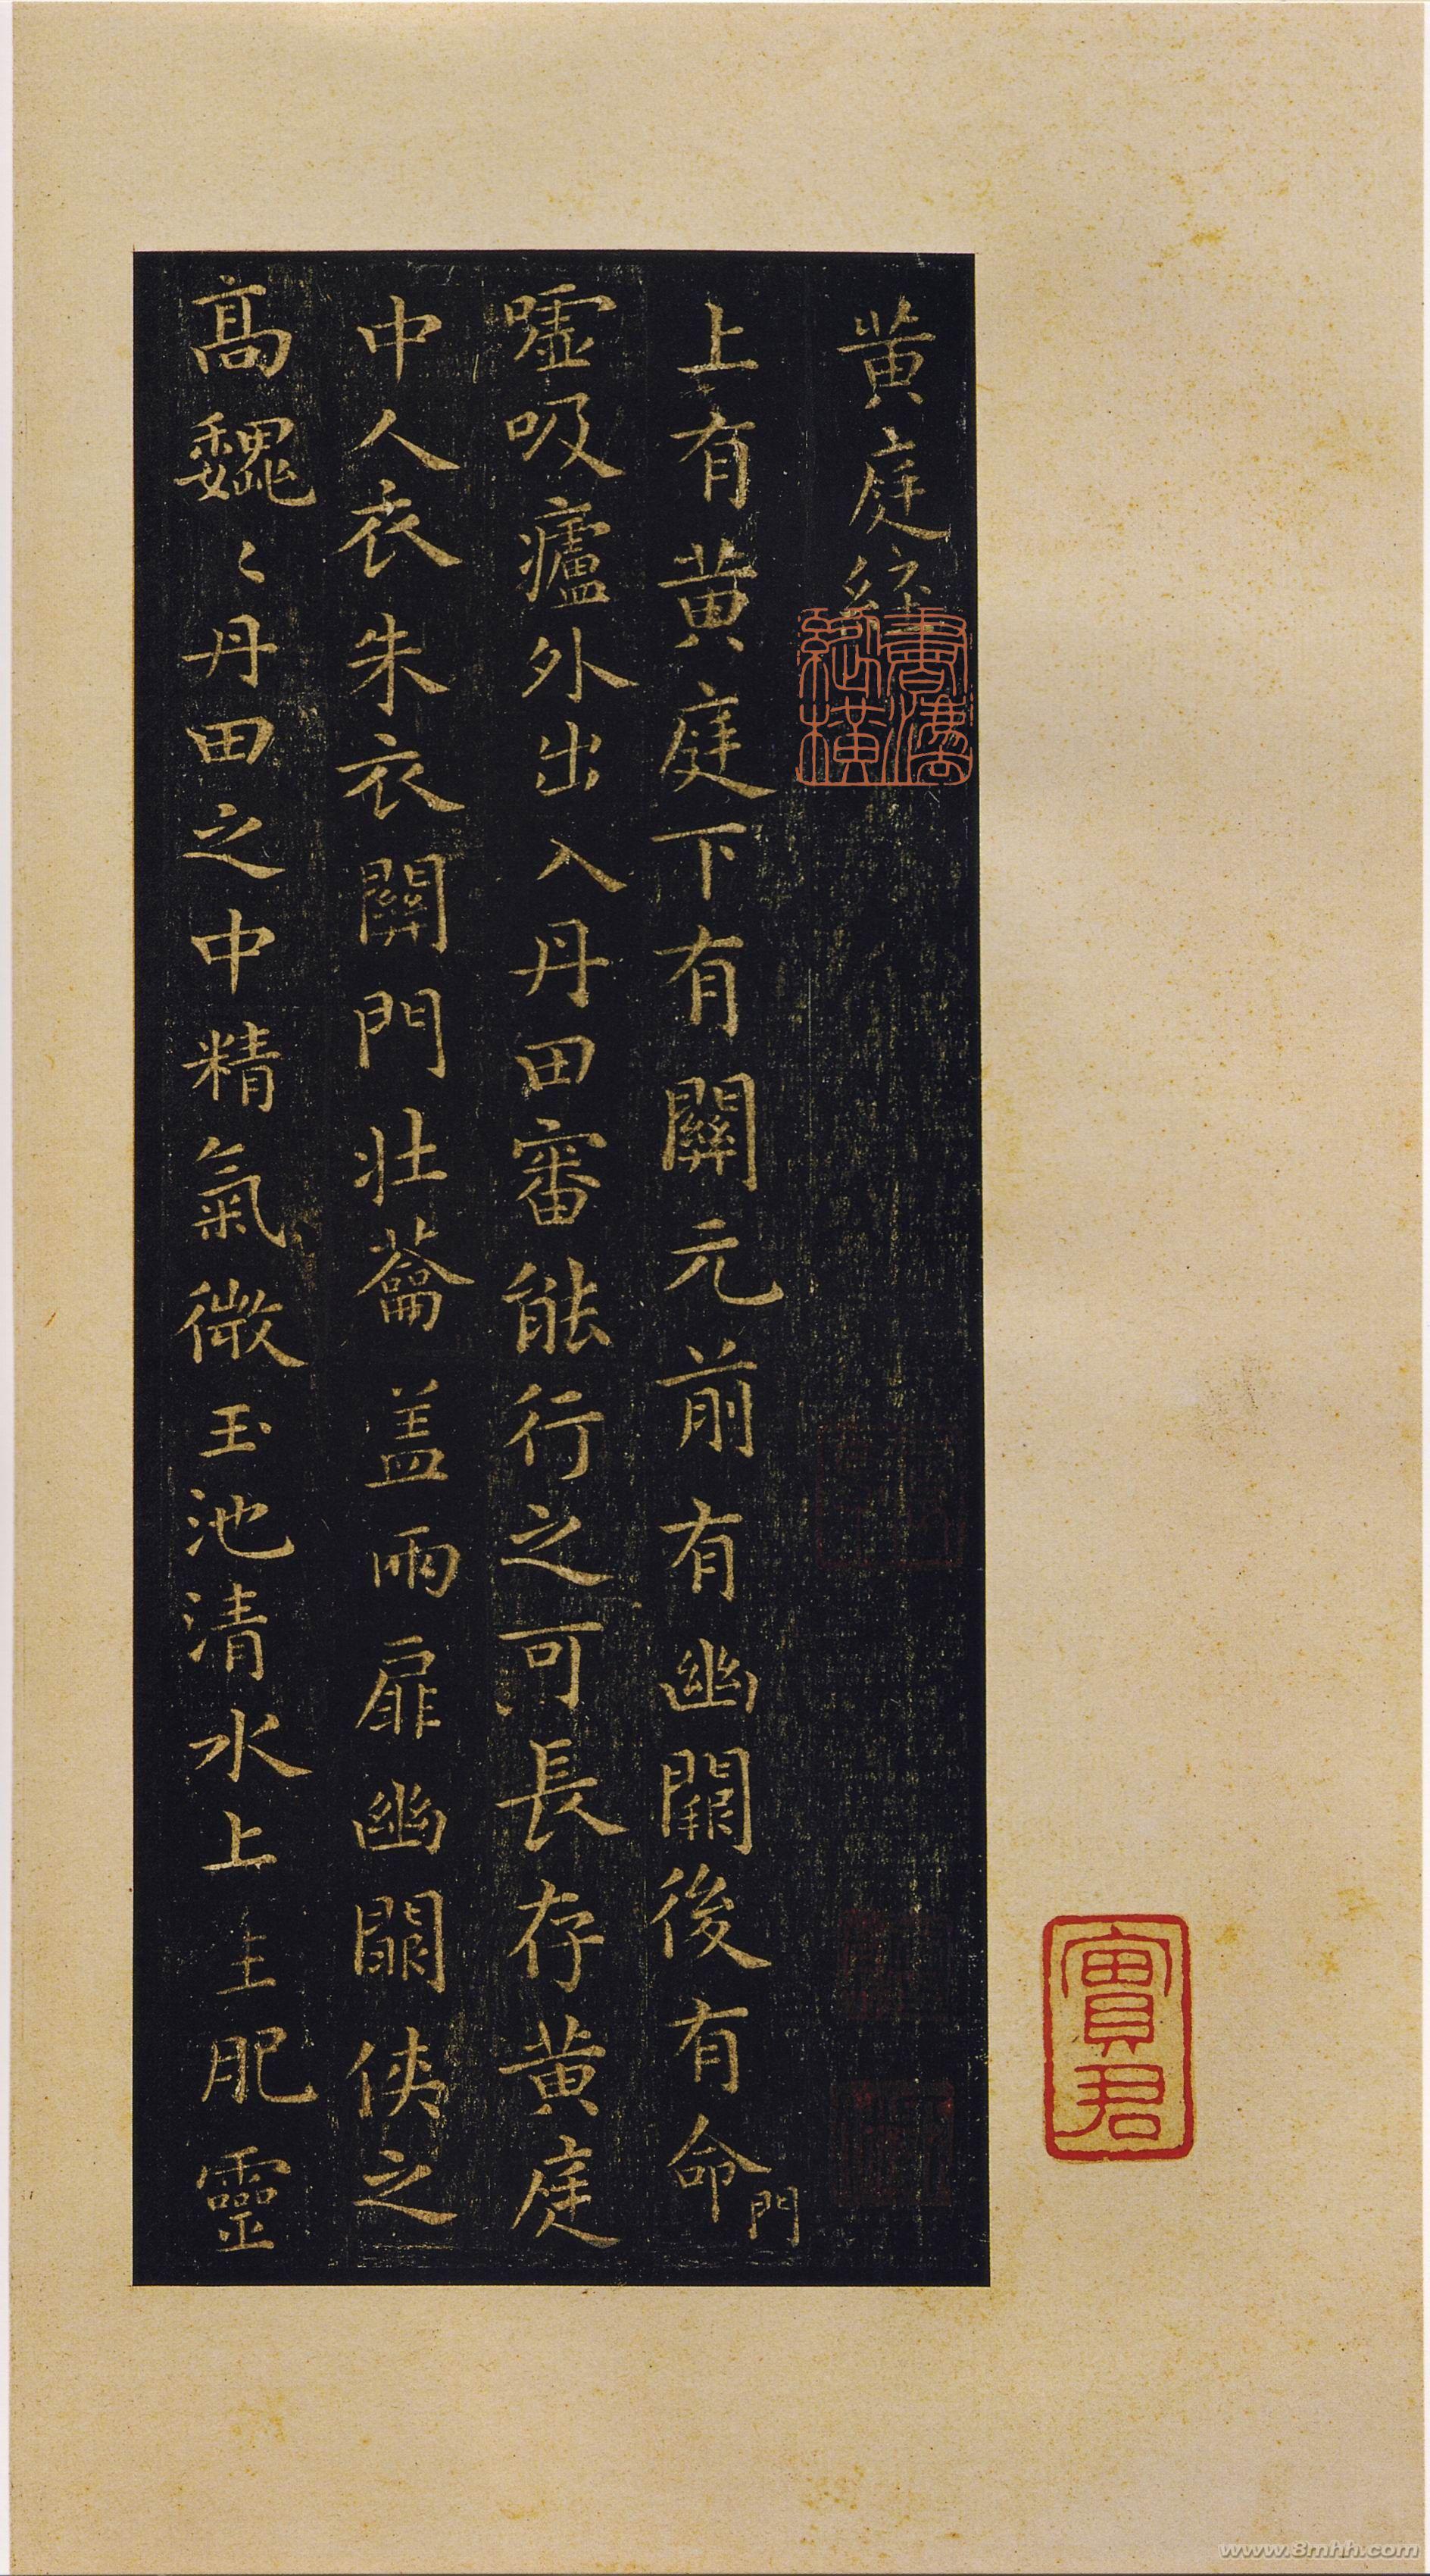 黄庭經
上有黄庭下有關元前有幽闕後有命門
嘘吸廬外出入丹田審能行之可長存黄庭
中人衣朱衣關門壯蘥盖兩扉幽闕俠之
高巍〻丹田之中精氣微玉池清水上主肥靈
書樓
縱橫
寶君
www.8mhh.com